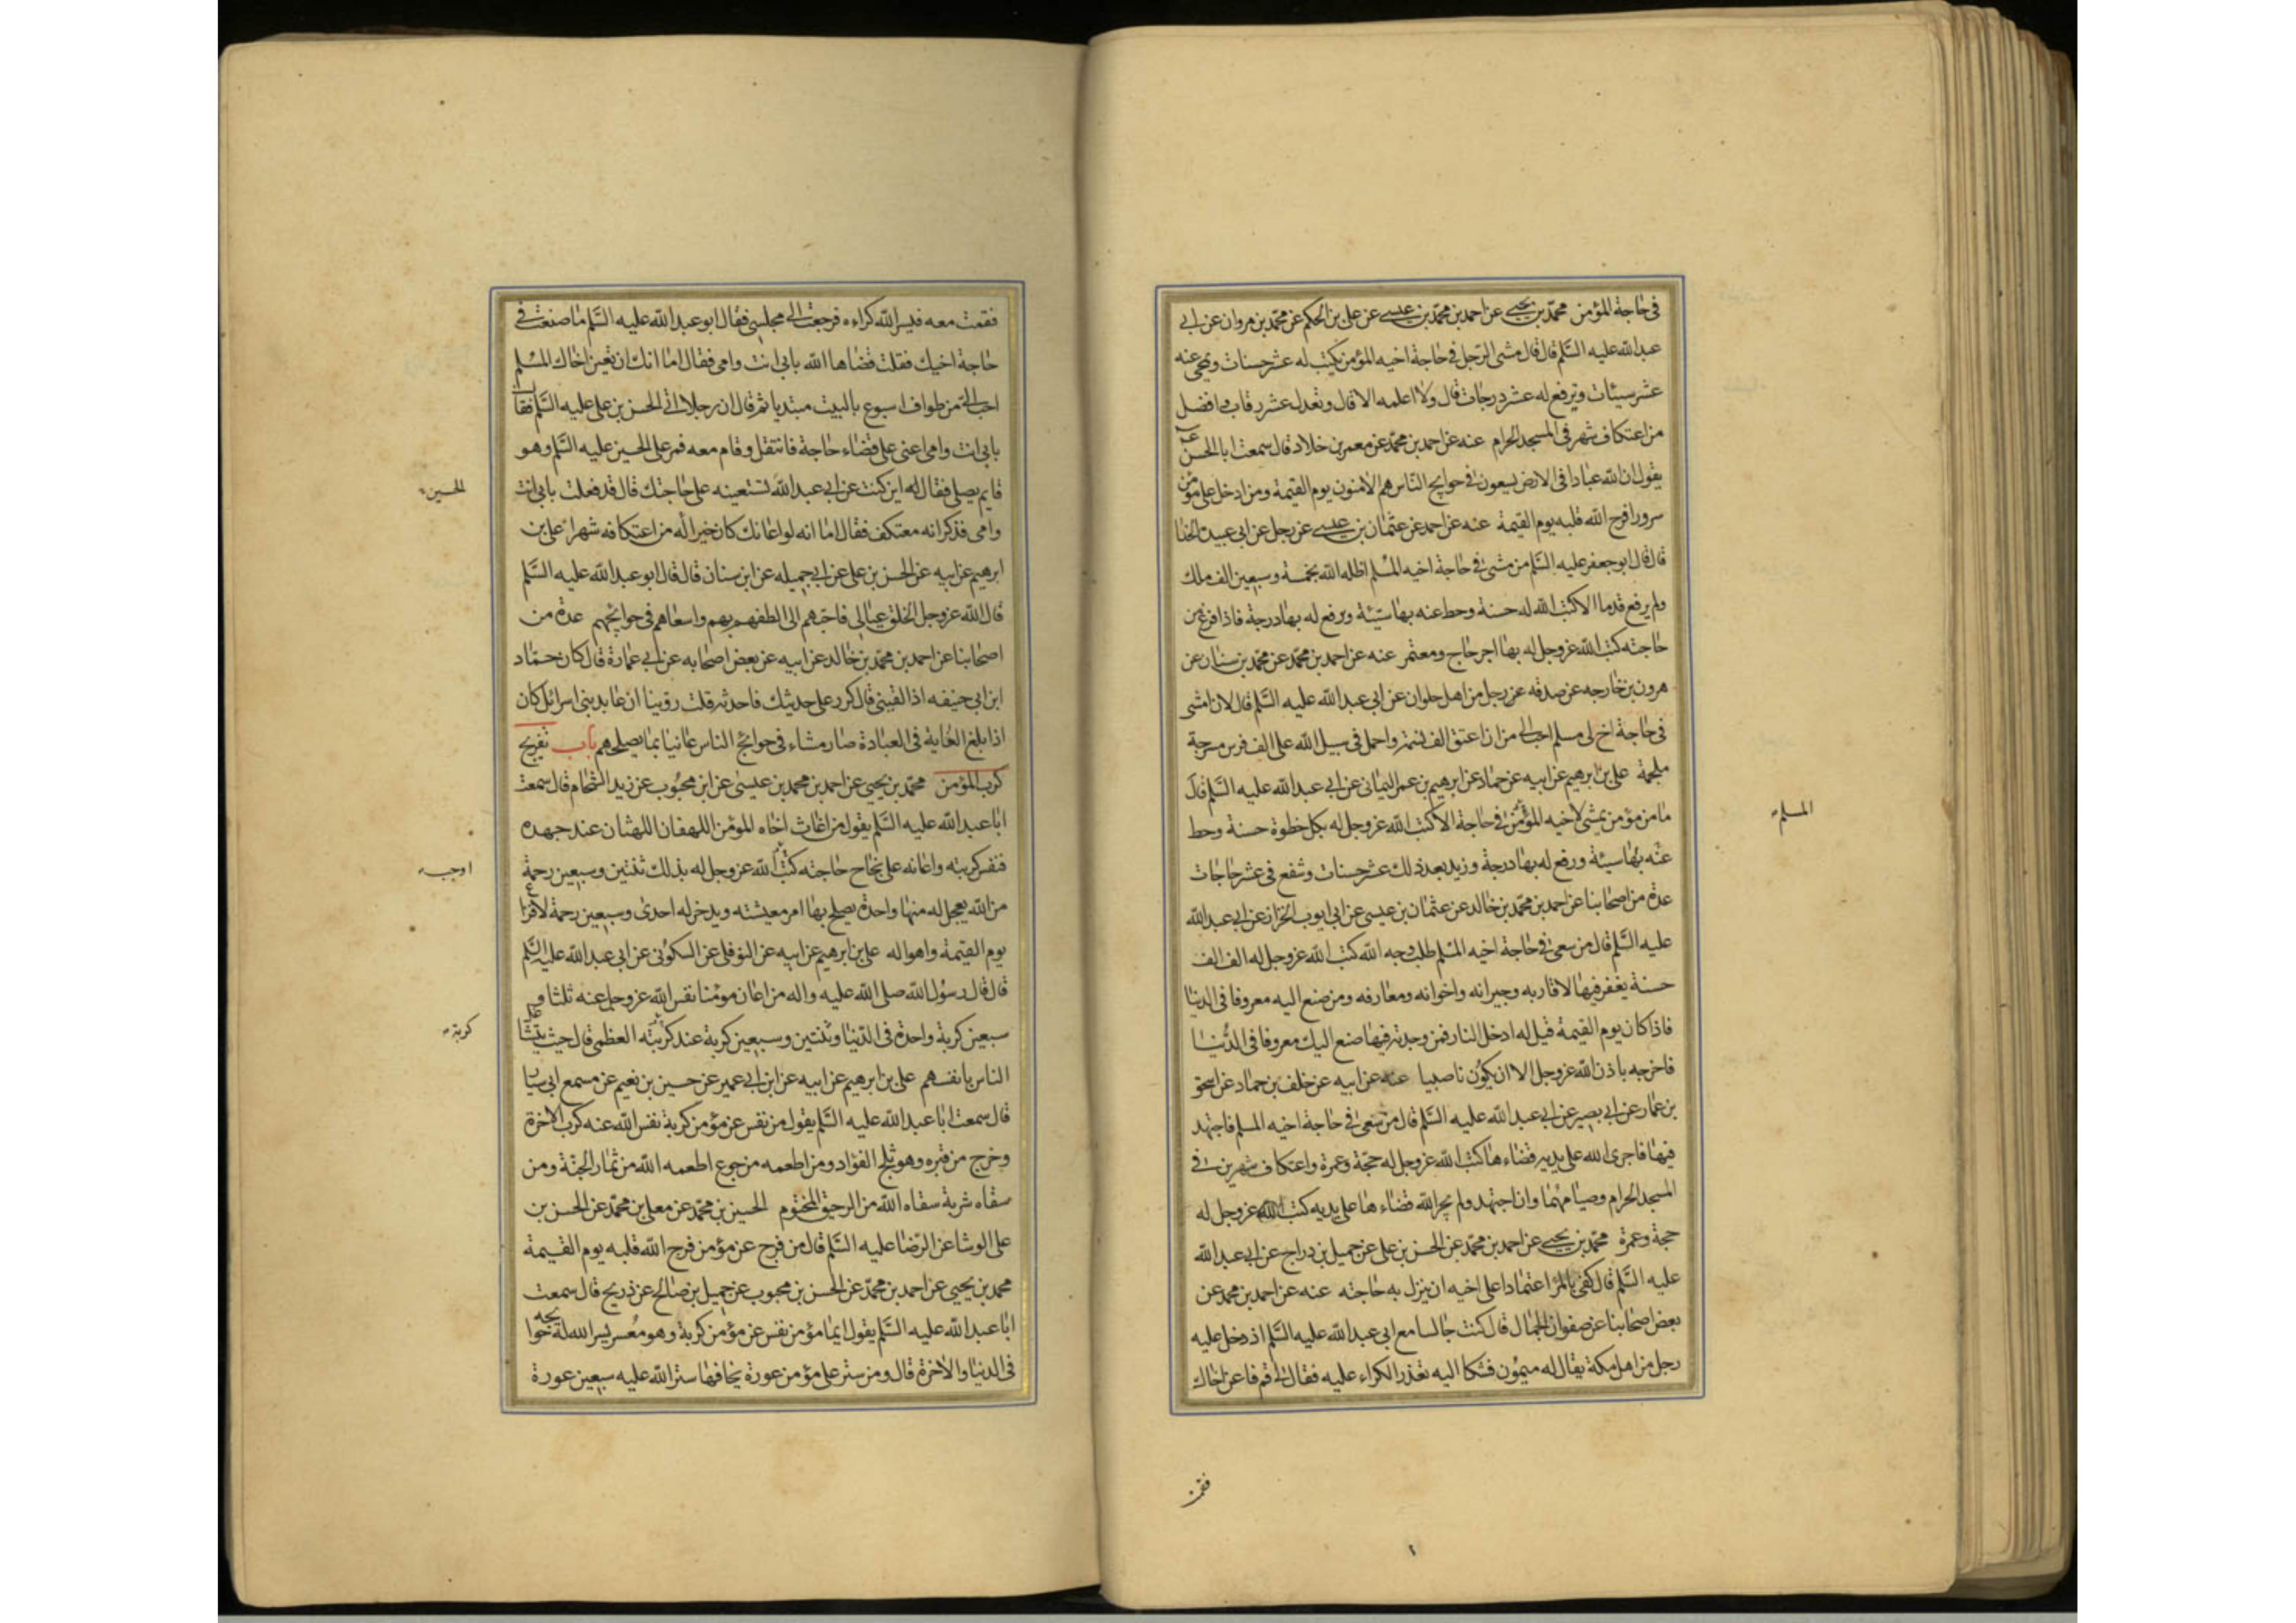 في حاجة المؤمن محمد بن يحيى عن احمد بن محمد بن عيسى عن على بن الحكم عن محمد بن مروان عن ابى
عبد الله عليه السّلم قال قال مشى الرّجل في حاجة اخيه المؤمن يكتب له عشر حسنات ويمحى عنه
عشر سيئات ويرفع له عشر درجات قال ولا اعلمه الا قال وتعدل عشر رقاب وافضل
من اعتكاف شهر في المسجد الحرام عنه عن احمد بن محمد عن معمر بن خلاد قال سمعت ابا الحسن ع
يقول ان لله عبادا في الارض يسعون في حوايج النّاس هم الامنون يوم القيمة ومن ادخل على مؤمن
سرورا فرح الله قلبه يوم القيمة عنه عن احمد عن عثمان بن عيسى عن رجل عن ابى عبيدة الحذا
قال قال ابو جعفر عليه السّلم من مشى في حاجة اخيه المسلم اظله الله بخمسة وسبعين الف ملك
ولم يرفع قدما الا كتب الله له حسنة وحط عنه بها سيّئة ويرفع له بها درجة فاذا فرغ من
حاجته كتب الله عز وجل له بها اجر حاج ومعتمر عنه عن احمد بن محمد عن محمد بن سنان عن
هرون بن خارجه عن صدقه عن رجل من اهل حلوان عن ابى عبد الله عليه السّلم قال لان امشى
في حاجة اخ لى مسلم احب الى من ان اعتق الف نسمة واحمل في سبيل الله على الف فرس مسرجة
ملجمة على بن ابرهيم عن ابيه عن حماد عن ابرهيم بن عمر اليمانى عن ابى عبد الله عليه السّلم قال
ما من مؤمن يمشى لاخيه المؤمن في حاجة الا كتب الله عز وجل له بكل خطوة حسنة وحط
المسلم
عنه بها سيئة ورفع له بها درجة وزيد بعد ذلك عشر حسنات وشفع في عشر حاجات
عدة من اصحابنا عن احمد بن محمد بن خالد عن عثمان بن عيسى عن ابى ايوب الخزاز عن ابى عبد الله
عليه السّلم قال من سعى في حاجة اخيه المسلم طلب وجه الله كتب الله عز وجل له الف الف
حسنة يغفر فيها لاقاربه وجيرانه واخوانه ومعارفه ومن صنع اليه معروفا في الدنيا
فاذا كان يوم القيمة قيل له ادخل النار فمن وجدته فيها صنع اليك معروفا في الدّنيا
فاخرجه باذن الله عز وجل الا ان يكون ناصبيا عنه عن ابيه عن خلف بن حماد عن اسحق
بن عمار عن ابى بصير عن ابى عبد الله عليه السّلم قال من سعى في حاجة اخيه المسلم فاجتهد
فيها فاجرى الله على يديه قضاءها كتب الله عز وجل له حجّة وعمرة واعتكاف شهرين في
المسجد الحرام وصيامهما وان اجتهد ولم يجر الله قضاءها على يديه كتب الله عز وجل له
حجة وعمرة محمد بن يحيى عن احمد بن محمد عن الحسن بن على عن جميل بن دراج عن ابى عبد الله
عليه السّلم قال كفى بالمرء اعتمادا على اخيه ان ينزل به حاجته عنه عن احمد بن محمد عن
بعض اصحابنا عن صفوان الجمال قال كنت جالسا مع ابى عبد الله عليه السّلم اذ دخل عليه
رجل من اهل مكة يقال له ميمون فشكا اليه تعذر الكراء عليه فقال لى قم فاعن اخاك
فقمت
فقمت معه فيسر الله كراءه فرجعت الى مجلسى فقال ابو عبد الله عليه السّلم ما صنعت في
حاجة اخيك فقلت قضاها الله بابى انت وامى فقال اما انك ان تعين اخاك المسلم
احب الىّ من طواف اسبوع بالبيت مبتديا ثم قال ان رجلا اتى الحسن بن على عليه السّلم فقال
بابى انت وامى اعنى على قضاء حاجة فانتقل وقام معه فمر على الحسين عليه السّلم وهو
قايم يصلى فقال له اين كنت عن ابى عبد الله تستعينه على حاجتك قال قد فعلت بابى انت
الحسين
وامى فذكر انه معتكف فقال اما انه لو اعانك كان خيرا له من اعتكافه شهرا على بن
ابرهيم عن ابيه عن الحسن بن على عن ابى جميله عن ابن سنان قال قال ابو عبد الله عليه السّلم
قال الله عز وجل الخلق عيالى فاحبّهم الى الطفهم بهم واسعاهم في حوائجهم عدة من
اصحابنا عن احمد بن محمد بن خالد عن ابيه عن بعض اصحابه عن ابى عمارة قال كان حمّاد
ابن ابى حنيفه اذا لقينى قال كرر على حديثك فاحدثه قلت روينا ان عابد بنى اسرائل كان
اذا بلغ الغاية في العبادة صار مشاء في حوائج الناس عانيا بما يصلحهم باب تفريج
كرب المؤمن محمد بن يحيى عن احمد بن محمد بن عيسى عن ابن محبوب عن زيد الشحام قال سمعت
ابا عبد الله عليه السّلم يقول من اغاث اخاه المؤمن اللهفان اللهثان عند جهده
فنفس كربته واعانه على نجاح حاجته كتب الله عز وجل له بذلك ثنتين وسبعين رحمة
اوجب
من الله يعجل له منها واحدة يصلح بها امر معيشته ويدخر له احدى وسبعين رحمة لافزاع
يوم القيمة واهواله على بن ابرهيم عن ابيه عن النوفلى عن السكونى عن ابى عبد الله عليه السّلم
قال قال رسول الله صلى الله عليه واله من اعان مؤمنا نفس الله عز وجل عنه ثلثا و
سبعين كربة واحدة في الدّنيا وثنتين وسبعين كربة عند كربته العظمى قال حيث يتشاغل
كربه
الناس بانفسهم على بن ابرهيم عن ابيه عن ابن ابى عمير عن حسين بن نعيم عن مسمع ابى سيار
قال سمعت ابا عبد الله عليه السّلم يقول من نفس عن مؤمن كربة نفس الله عنه كرب الاخرة
وخرج من قبره وهو ثلج الفؤاد ومن اطعمه من جوع اطعمه الله من ثمار الجنّة ومن
سقاه شربة سقاه الله من الرحيق المختوم الحسين بن محمد عن معلى بن محمد عن الحسن بن
على الوشا عن الرّضا عليه السّلم قال من فرج عن مؤمن فرح الله قلبه يوم القيمة
محمد بن يحيى عن احمد بن محمد عن الحسن بن محبوب عن جميل بن صالح عن ذريح قال سمعت
ابا عبد الله عليه السّلم يقول ايما مؤمن نفس عن مؤمن كربة وهو معسر يسر الله له حوائجه
في الدنيا والاخرة قال ومن ستر على مؤمن عورة يخافها ستر الله عليه سبعين عورة